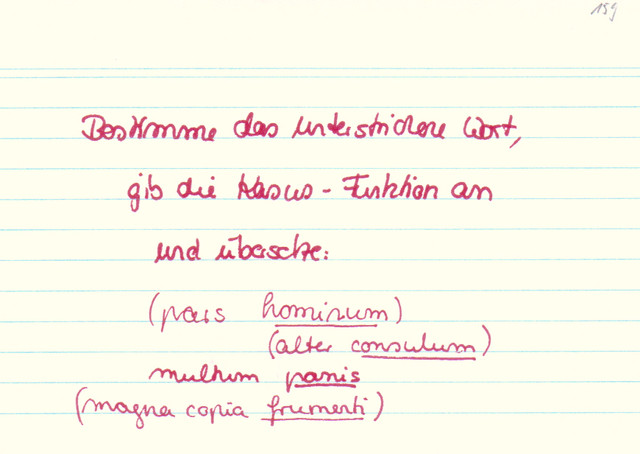 159
Bestimme das unterstrichene Wort,
gib die Kasus-Funktion an
und übersetze:
(pars hominum)
(alter consulum)
multum panis
(magna copia frumenti)